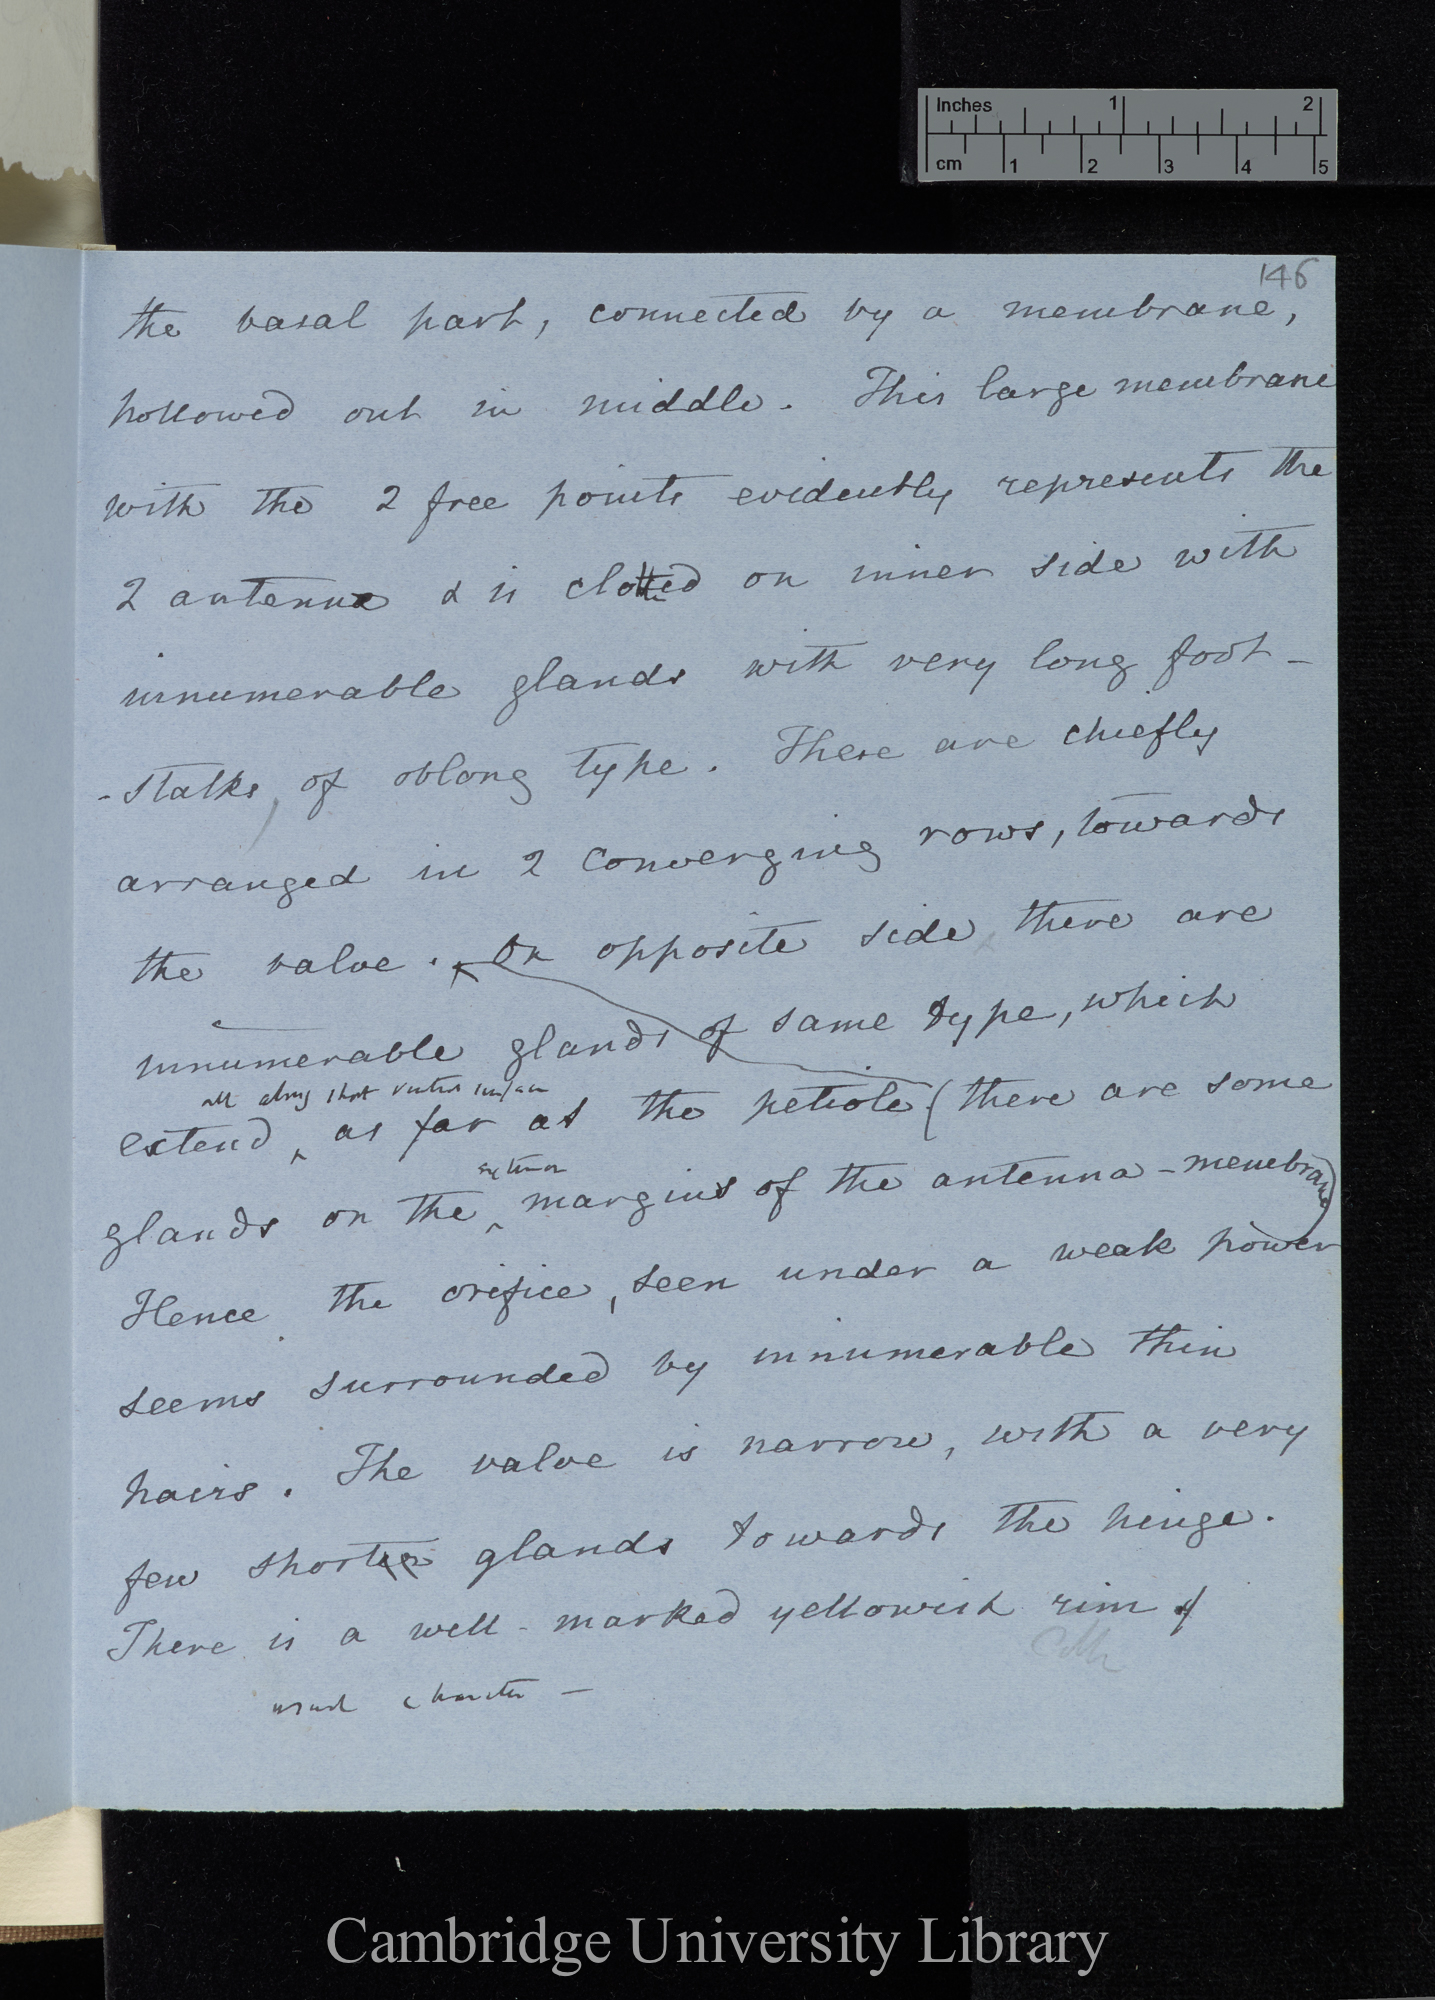 Inches 1 2
cm 1 2 3 4 5
146
the basal part, connected by a membrane,
hollowed out in middle. This large membrane
with the 2 free points evidently represents the
2 antennæ & is clothed on inner side with
innumerable glands with very long foot-
-stalks, of oblong type. These are chiefly
arranged in 2 converging rows, towards
the valve. On opposite side there are
innumerable glands of same type, which
all along that ventral surface
extend, as far as the petiole (there are some
exterior
glands on the margins of the antenna-membrane)
Hence the orifice, seen under a weak power
seems surrounded by innumerable thin
hairs. The valve is narrow, with a very
few shorter glands towards the hinge.
There is a well-marked yellowish rim of
usual character —
Cambridge University Library